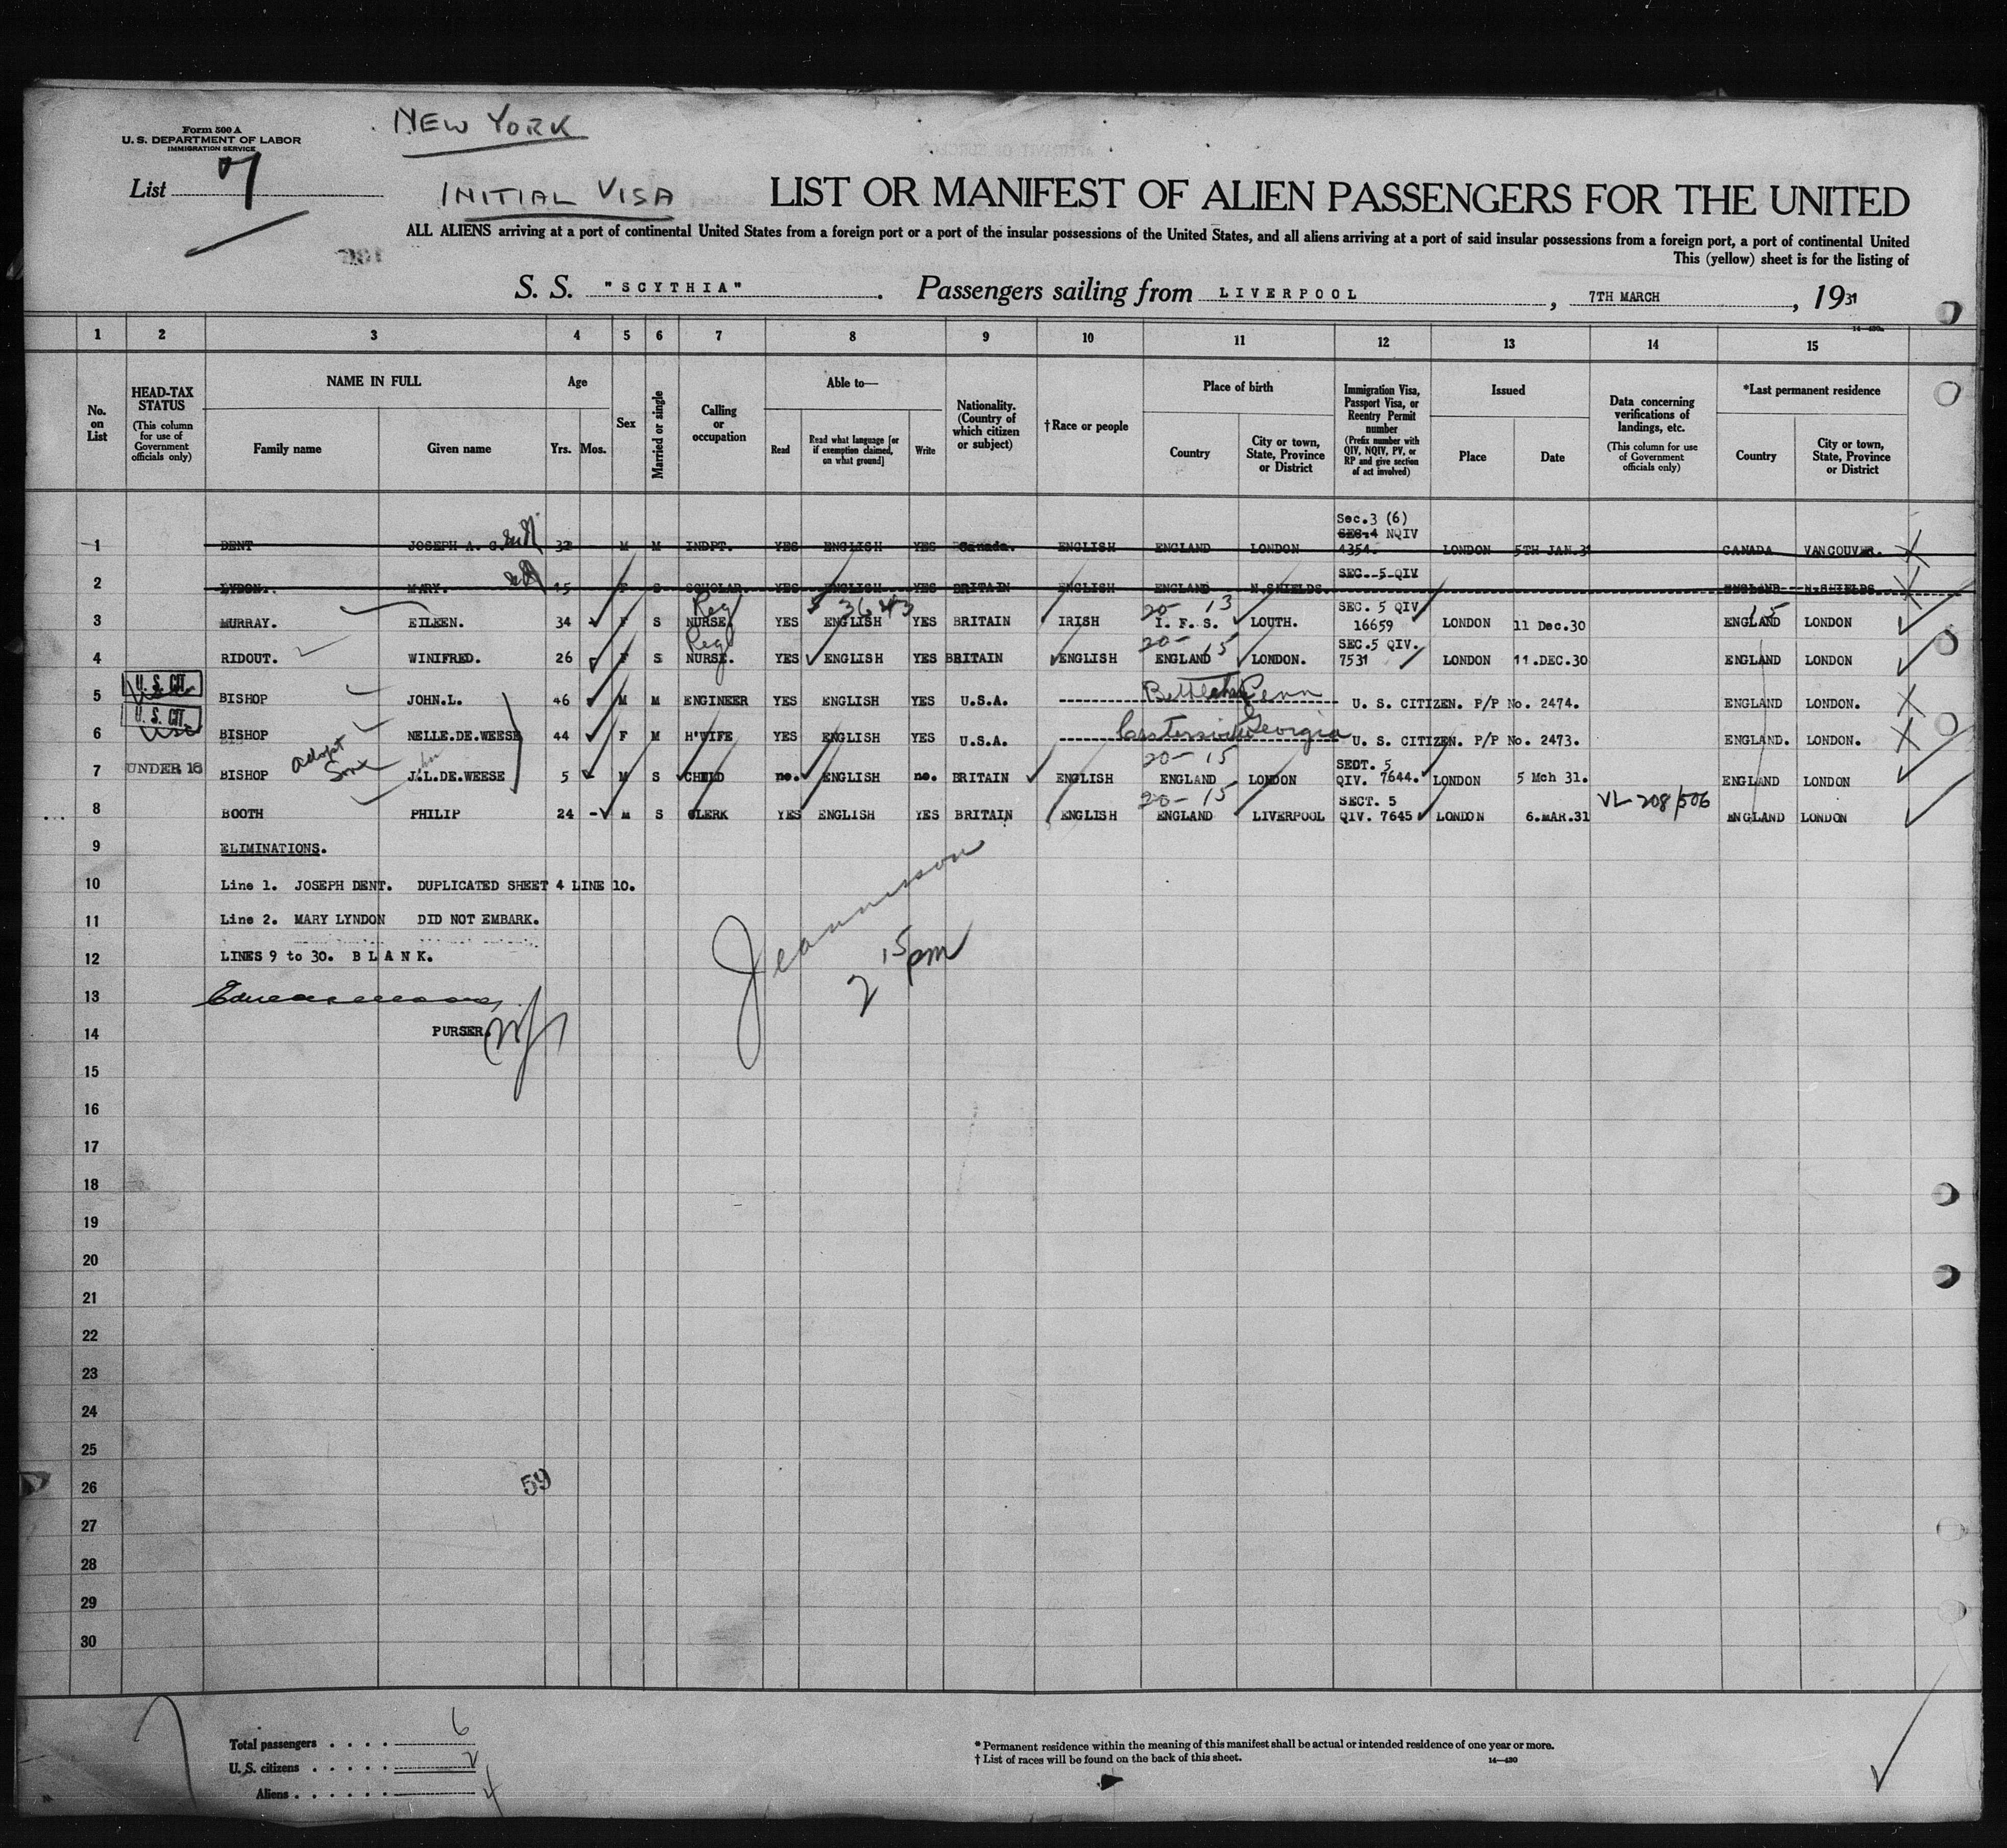 Form 500 A
U. S. DEPARTMENT OF LABOR
IMMIGRATION SERVICE
NEW YORK
List 7
INITIAL VISA
LIST OR MANIFEST OF ALIEN PASSENGERS FOR THE UNITED
ALL ALIENS arriving at a port of continental United States from a foreign port or a port of the insular possessions of the United States, and all aliens arriving at a port of said insular possessions from a foreign port, a port of continental United
This (yellow) sheet is for the listing of
S. S. "SCYTHIA". Passengers sailing from LIVERPOOL, 7TH MARCH, 1931
14—430a
1 2 3 4 5 6 7 8 9 10 11 12 13 14 15
No. on List
HEAD-TAX STATUS
(This column for use of Government officials only)
NAME IN FULL
Family name Given name
Age
Yrs. Mos.
Sex
Married or single
Calling or occupation
Able to—
Read Read what language [or if exemption claimed, on what ground] Write
Nationality. (Country of which citizen or subject)
†Race or people
Place of birth
Country City or town, State, Province or District
Immigration Visa, Passport Visa, or Reentry Permit number
(Prefix number with QIV, NQIV, PV, or RP and give section of act involved)
Issued
Place Date
Data concerning verifications of landings, etc.
(This column for use of Government officials only)
*Last permanent residence
Country City or town, State, Province or District
Sec.3 (6)
SEC.4 NQIV
1 DENT JOSEPH A. G. 32 M M INDPT. YES ENGLISH YES Canada. ENGLISH ENGLAND LONDON 4354. LONDON 5TH JAN.31 CANADA VANCOUVER.
SEC. 5 QIV
2 LYDON. MARY. 15 F S SCHOLAR. YES ENGLISH YES BRITAIN ENGLISH ENGLAND N.SHIELDS. ENGLAND N.SHIELDS.
Reg 3643 20- 13 SEC. 5 QIV 15
3 MURRAY. EILEEN. 34 F S NURSE. YES ENGLISH YES BRITAIN IRISH I. F. S. LOUTH. 16659 LONDON 11 Dec.30 ENGLAND LONDON
Reg 20- 15 SEC.5 QIV.
4 RIDOUT. WINIFRED. 26 F S NURSE. YES ENGLISH YES BRITAIN ENGLISH ENGLAND LONDON. 7531 LONDON 11.DEC.30 ENGLAND LONDON
U. S. CIT.
5 BISHOP JOHN.L. 46 M M ENGINEER YES ENGLISH YES U.S.A. Penn U. S. CITIZEN. P/P No. 2474. ENGLAND LONDON.
U. S. CIT.
6 BISHOP NELLE.DE.WEESE 44 F M H'WIFE YES ENGLISH YES U.S.A. Georgia U. S. CITIZEN. P/P No. 2473. ENGLAND. LONDON.
adopt son 20- 15 SEDT. 5
7 UNDER 16 BISHOP J.L.DE.WEESE 5 - M S CHILD no. ENGLISH no. BRITAIN ENGLISH ENGLAND LONDON QIV. 7644. LONDON 5 Mch 31. ENGLAND LONDON
20- 15 SECT. 5 VL 208/506
8 BOOTH PHILIP 24 - M S CLERK YES ENGLISH YES BRITAIN ENGLISH ENGLAND LIVERPOOL QIV. 7645 LONDON 6.MAR.31 ENGLAND LONDON
9 ELIMINATIONS.
10 Line 1. JOSEPH DENT. DUPLICATED SHEET 4 LINE 10.
11 Line 2. MARY LYNDON DID NOT EMBARK.
12 LINES 9 to 30. BLANK.
2 15 pm
13
14 PURSER.
15
16
17
18
19
20
21
22
23
24
25
26
59
27
28
29
30
Total passengers . . . . 6
U. S. citizens . . . . . 2
Aliens . . . . . . 4
* Permanent residence within the meaning of this manifest shall be actual or intended residence of one year or more.
† List of races will be found on the back of this sheet.
14—430